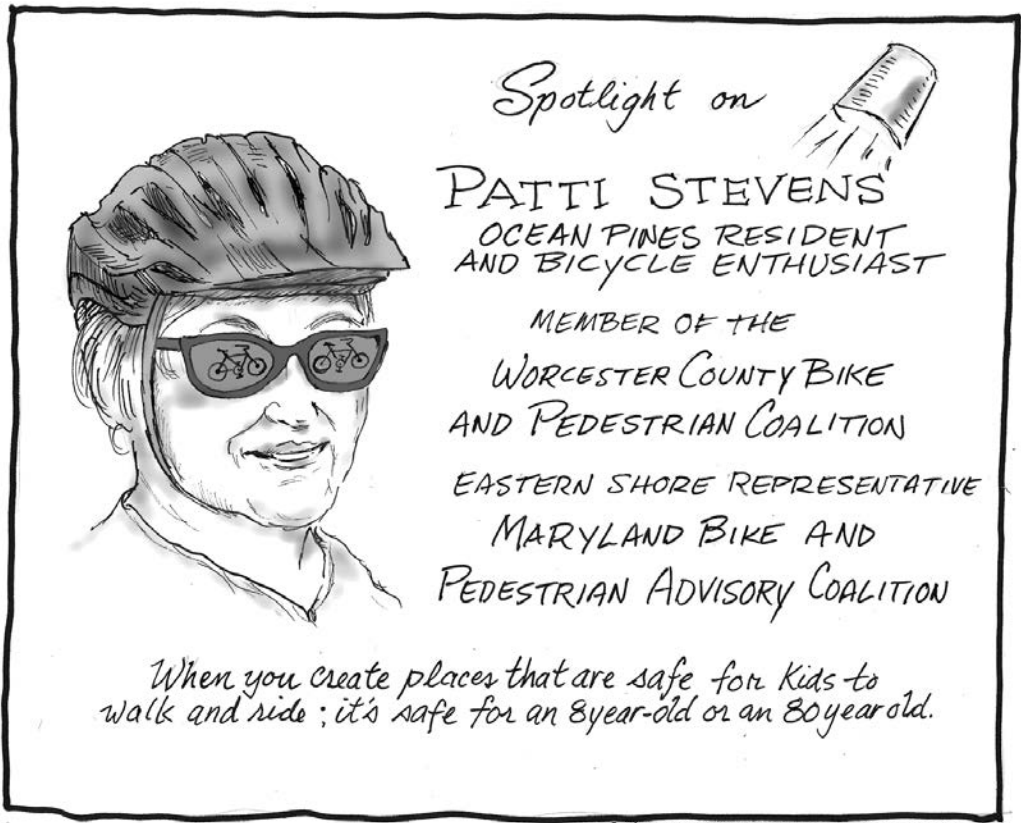 Spotlight on
PATTI STEVENS
OCEAN PINES RESIDENT
AND BICYCLE ENTHUSIAST
MEMBER OF THE
WORCESTER COUNTY BIKE
AND PEDESTRIAN COALITION
EASTERN SHORE REPRESENTATIVE
MARYLAND BIKE AND
PEDESTRIAN ADVISORY COALITION
When you create places that are safe for kids to
walk and ride ; it's safe for an 8year-old or an 80 year old.